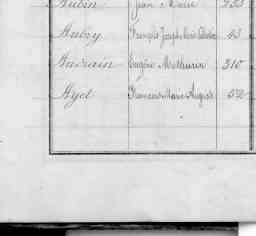 Aubin Jean Marie
Aubry François Joseph Marie 43
Audrain Eugène Mathurin 310
Ayet François Marie Auguste